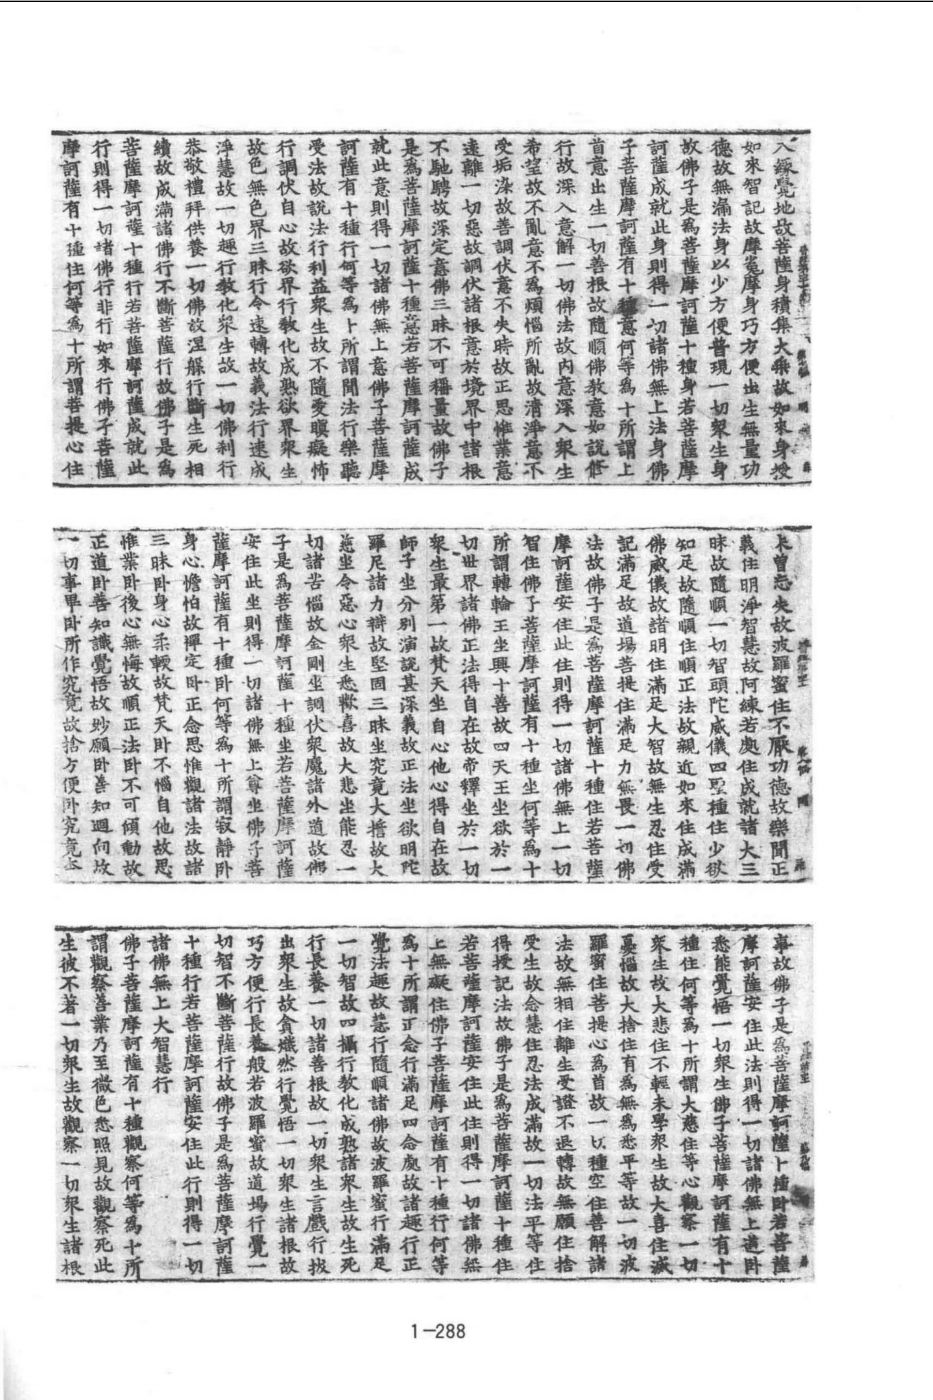 入緣覺地故菩薩身積集大乘故如來身授
如來智記故摩㝹摩身巧方便出生無量功
德故無漏法身以少方便普現一切眾生身
故佛子是為菩薩摩訶薩十種身若菩薩摩
訶薩成就此身則得一切諸佛無上法身佛
子菩薩摩訶薩有十種意何等為十所謂上
首意出生一切善根故隨順佛教意如說修
行故深入意解一切佛法故內意深入眾生
希望故不亂意不為煩惱所亂故清淨意不
受垢染故善調伏意不失時故正思惟業意
遠離一切惡故調伏諸根意於境界中諸根
不馳騁故深定意佛三昧不可稱量故佛子
是為菩薩摩訶薩十種意若菩薩摩訶薩成
就此意則得一切諸佛無上意佛子菩薩摩
訶薩有十種行何等為十所謂聞法行樂聽
受法故說法行利益眾生故不隨愛瞋癡怖
行調伏自心故欲界行教化成熟欲界眾生
故色無色界三昧行令速轉故義法行速成
淨慧故一切趣行教化眾生故一切佛剎行
恭敬禮拜供養一切佛故涅槃行斷生死相
續故成滿諸佛行不斷菩薩行故佛子是為
菩薩摩訶薩十種行若菩薩摩訶薩成就此
行則得一切諸佛行非行如來行佛子菩薩
摩訶薩有十種住何等為十所謂菩提心住
未曾忘失故波羅蜜住不厭功德故樂聞正
義住明淨智慧故阿練若處住成就諸大三
昧故隨順一切智頭陀威儀四聖種住少欲
知足故隨順住順正法故親近如來住成滿
佛威儀故諸明住滿足大智故無生忍住受
記滿足故道場菩提住滿足力無畏一切佛
法故佛子是為菩薩摩訶薩十種住若菩薩
摩訶薩安住此住則得一切諸佛無上一切
智住佛子菩薩摩訶薩有十種坐何等為十
所謂轉輪王坐興十善故四天王坐欲於一
切世界諸佛正法得自在故帝釋坐於一切
眾生最第一故梵天坐自心他心得自在故
師子坐分別演說甚深義故正法坐欲明陀
羅尼諸力辯故堅固三昧坐究竟大擔故大
慈坐令惡心眾生悉歡喜故大悲坐能忍一
切諸苦惱故金剛坐調伏眾魔諸外道故佛
子是為菩薩摩訶薩十種坐若菩薩摩訶薩
安住此坐則得一切諸佛無上尊坐佛子菩
薩摩訶薩有十種臥何等為十所謂寂靜臥
身心憺怕故禪定臥正念思惟觀諸法故諸
三昧臥身心柔軟故梵天臥不惱自他故思
惟業臥後心無悔故順正法臥不可傾動故
正道臥善知識覺悟故妙願臥善知迴向故
一切事畢臥所作究竟故捨方便臥究竟
事故佛子是為菩薩摩訶薩十種臥若菩薩
摩訶薩安住此法則得一切諸佛無上道臥
悉能覺悟一切眾生佛子菩薩摩訶薩有十
種住何等為十所謂大慈住等心觀察一切
眾生故大悲住不輕未學眾生故大喜住滅
憂惱故大捨住有為無為悉平等故一切波
羅蜜住菩提心為首故一切種空住善解諸
法故無相住離生受證不退轉故無願住捨
受生故念慧住忍法成滿故一切法平等住
得授記法故佛子是為菩薩摩訶薩十種住
若菩薩摩訶薩安住此住則得一切諸佛無
上無礙住佛子菩薩摩訶薩有十種行何等
為十所謂正念行滿足四念處故諸趣行正
覺法趣故慧行隨順諸佛故波羅蜜行滿足
一切智故四攝行教化成熟諸眾生故生死
行長養一切諸善根故一切眾生言戲行拔
出眾生故貪熾然行覺悟一切眾生諸根故
巧方便行長養般若波羅蜜故道場行覺一
切智不斷菩薩行故佛子是為菩薩摩訶薩
十種行若菩薩摩訶薩安住此行則得一切
諸佛無上大智慧行
佛子菩薩摩訶薩有十種觀察何等為十所
謂觀察善業乃至微色悉照見故觀察死此
生彼不著一切眾生故觀察一切眾生諸根
1-288